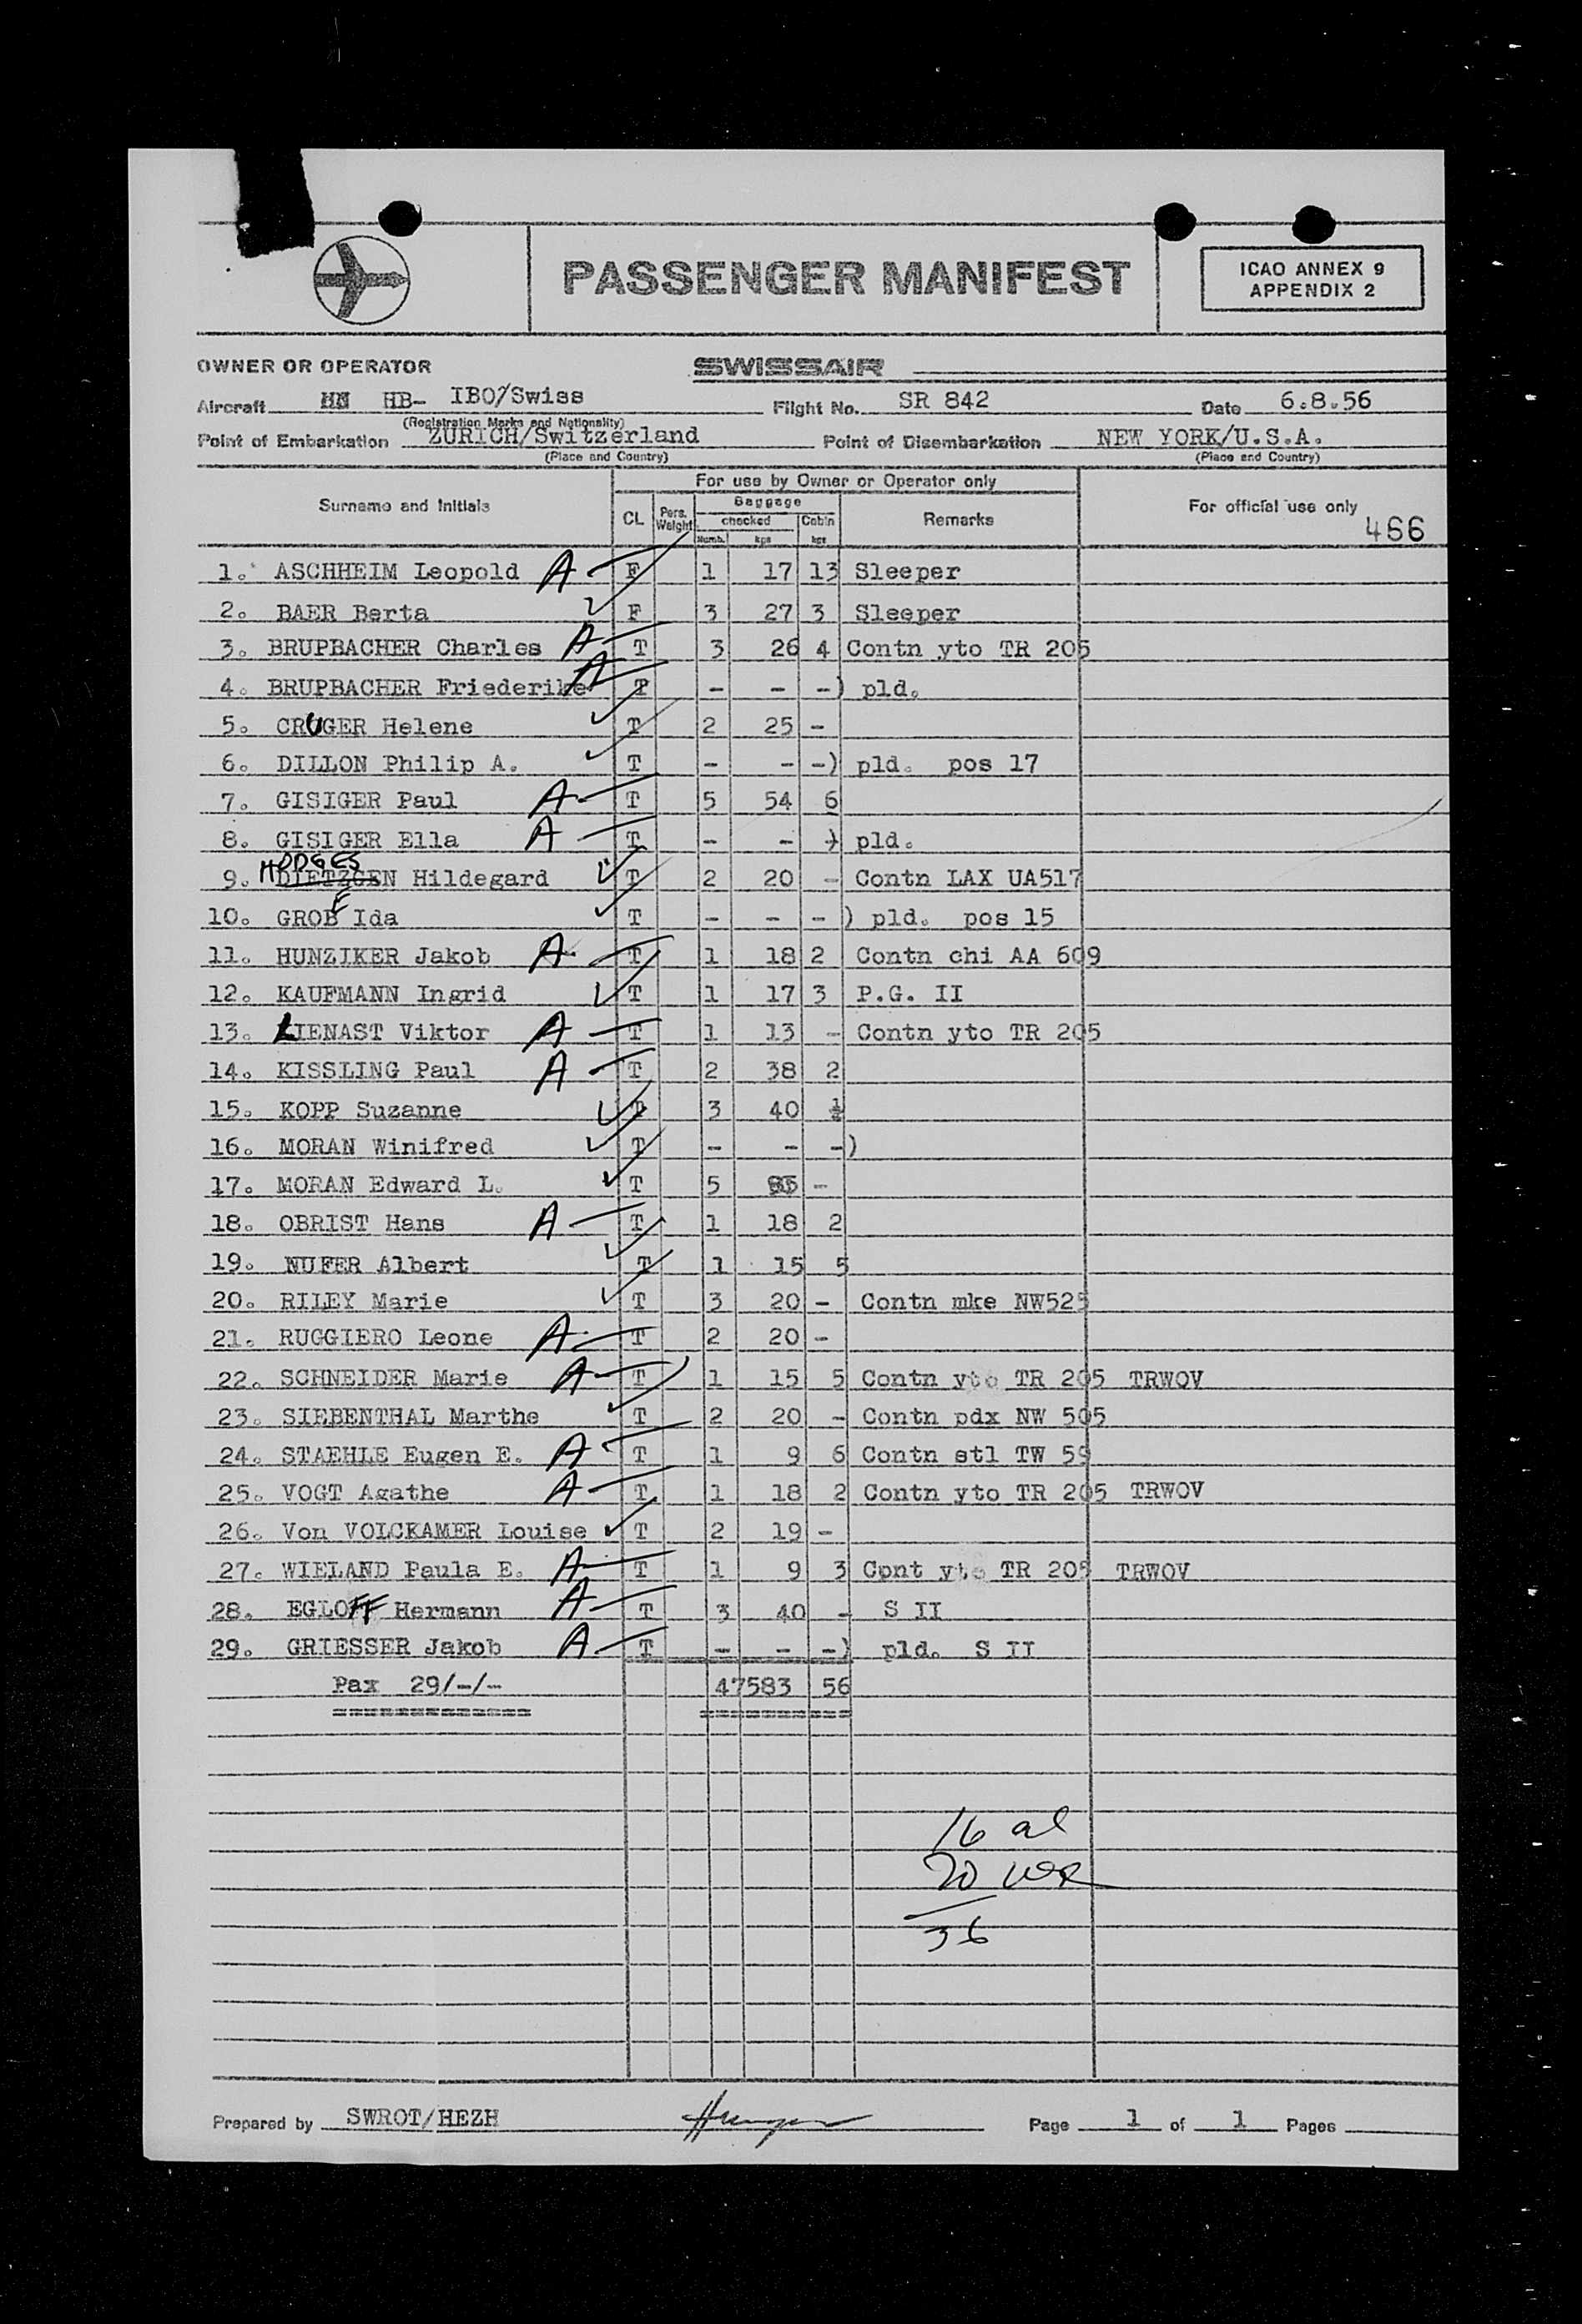 PASSENGER MANIFEST
ICAO ANNEX 9
APPENDIX 2
OWNER OR OPERATOR SWISSAIR
Aircraft HB- IBO/Swiss Flight No. SR 842 Date 6.8.56
(Registration Marks and Nationality)
Point of Embarkation ZURICH/Switzerland Point of Disembarkation NEW YORK/U.S.A.
(Place and Country) (Place and Country)
For use by Owner or Operator only
Surname and Initials CL Pers. Weight Baggage checked Numb. kgs Cabin kgs Remarks For official use only
466
1. ASCHHEIM Leopold A F 1 17 13 Sleeper
2. BAER Berta F 3 27 3 Sleeper
3. BRUPBACHER Charles A T 3 26 4 Contn yto TR 205
4. BRUPBACHER Friederike A T - - -) pld.
5. CRUGER Helene T 2 25 -
6. DILLON Philip A. T - - -) pld. pos 17
7. GISIGER Paul A T 5 54 6
8. GISIGER Ella A T - - ) pld.
HODGES
9. DIETZGEN Hildegard T 2 20 - Contn LAX UA517
10. GROB Ida T - - - ) pld. pos 15
11. HUNZIKER Jakob A T 1 18 2 Contn chi AA 609
12. KAUFMANN Ingrid T 1 17 3 P.G. II
13. LIENAST Viktor A T 1 13 - Contn yto TR 205
14. KISSLING Paul A T 2 38 2
15. KOPP Suzanne T 3 40 ½
16. MORAN Winifred T - - -)
17. MORAN Edward L. T 5 -
18. OBRIST Hans A T 1 18 2
19. NUFER Albert T 1 15 5
20. RILEY Marie T 3 20 - Contn mke NW525
21. RUGGIERO Leone A T 2 20 -
22. SCHNEIDER Marie A T 1 15 5 Contn yto TR 205 TRWOV
23. SIEBENTHAL Marthe T 2 20 - Contn pdx NW 505
24. STAEHLE Eugen E. A T 1 9 6 Contn stl TW 59
25. VOGT Agathe A T 1 18 2 Contn yto TR 205 TRWOV
26. Von VOLCKAMER Louise T 2 19 -
27. WIELAND Paula E. A T 1 9 3 Cpnt yto TR 205 TRWOV
28. EGLOFF Hermann A T 3 40 - S II
29. GRIESSER Jakob A T - - -) pld. S II
Pax 29/-/- 47583 56
=============
16 al
20
36
Prepared by SWROT/HEZH Page 1 of 1 Pages